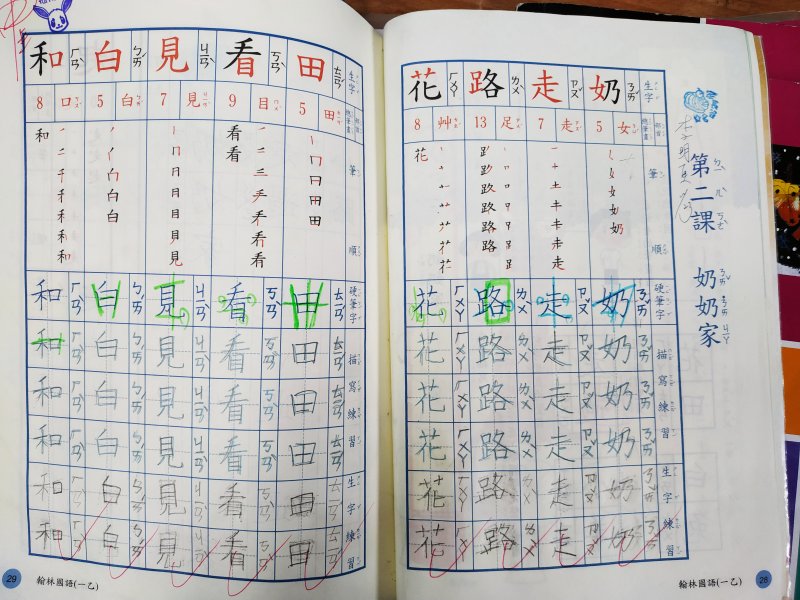 第二課 奶奶家
生字
總筆畫 部首
筆順
硬筆字
描寫練習
生字練習
奶 ㄋㄞˇ
5 女
奶 ㄋㄞˇ
奶 ㄋㄞˇ
奶 ㄋㄞˇ
奶 ㄋㄞˇ
奶 ㄋㄞˇ
奶 ㄋㄞˇ
走 ㄗㄡˇ
7 走
走 ㄗㄡˇ
走 ㄗㄡˇ
走 ㄗㄡˇ
走 ㄗㄡˇ
走 ㄗㄡˇ
走 ㄗㄡˇ
路 ㄌㄨˋ
13 足
路 ㄌㄨˋ
路 ㄌㄨˋ
路 ㄌㄨˋ
路 ㄌㄨˋ
路 ㄌㄨˋ
路 ㄌㄨˋ
花 ㄏㄨㄚ
8 艸
花 ㄏㄨㄚ
花 ㄏㄨㄚ
花 ㄏㄨㄚ
花 ㄏㄨㄚ
花 ㄏㄨㄚ
花 ㄏㄨㄚ
翰林國語(一乙) 28
生字
總筆畫 部首
筆順
硬筆字
描寫練習
生字練習
田 ㄊㄧㄢˊ
5 田
田 ㄊㄧㄢˊ
田 ㄊㄧㄢˊ
田 ㄊㄧㄢˊ
田 ㄊㄧㄢˊ
田 ㄊㄧㄢˊ
田 ㄊㄧㄢˊ
看 ㄎㄢˋ
9 目
看 ㄎㄢˋ
看 ㄎㄢˋ
看 ㄎㄢˋ
看 ㄎㄢˋ
看 ㄎㄢˋ
看 ㄎㄢˋ
見 ㄐㄧㄢˋ
7 見
見 ㄐㄧㄢˋ
見 ㄐㄧㄢˋ
見 ㄐㄧㄢˋ
見 ㄐㄧㄢˋ
見 ㄐㄧㄢˋ
見 ㄐㄧㄢˋ
白 ㄅㄞˊ
5 白
白 ㄅㄞˊ
白 ㄅㄞˊ
白 ㄅㄞˊ
白 ㄅㄞˊ
白 ㄅㄞˊ
白 ㄅㄞˊ
和 ㄏㄢˋ
8 口
和 ㄏㄢˋ
和 ㄏㄢˋ
和 ㄏㄢˋ
和 ㄏㄢˋ
和 ㄏㄢˋ
和 ㄏㄢˋ
29 翰林國語(一乙)